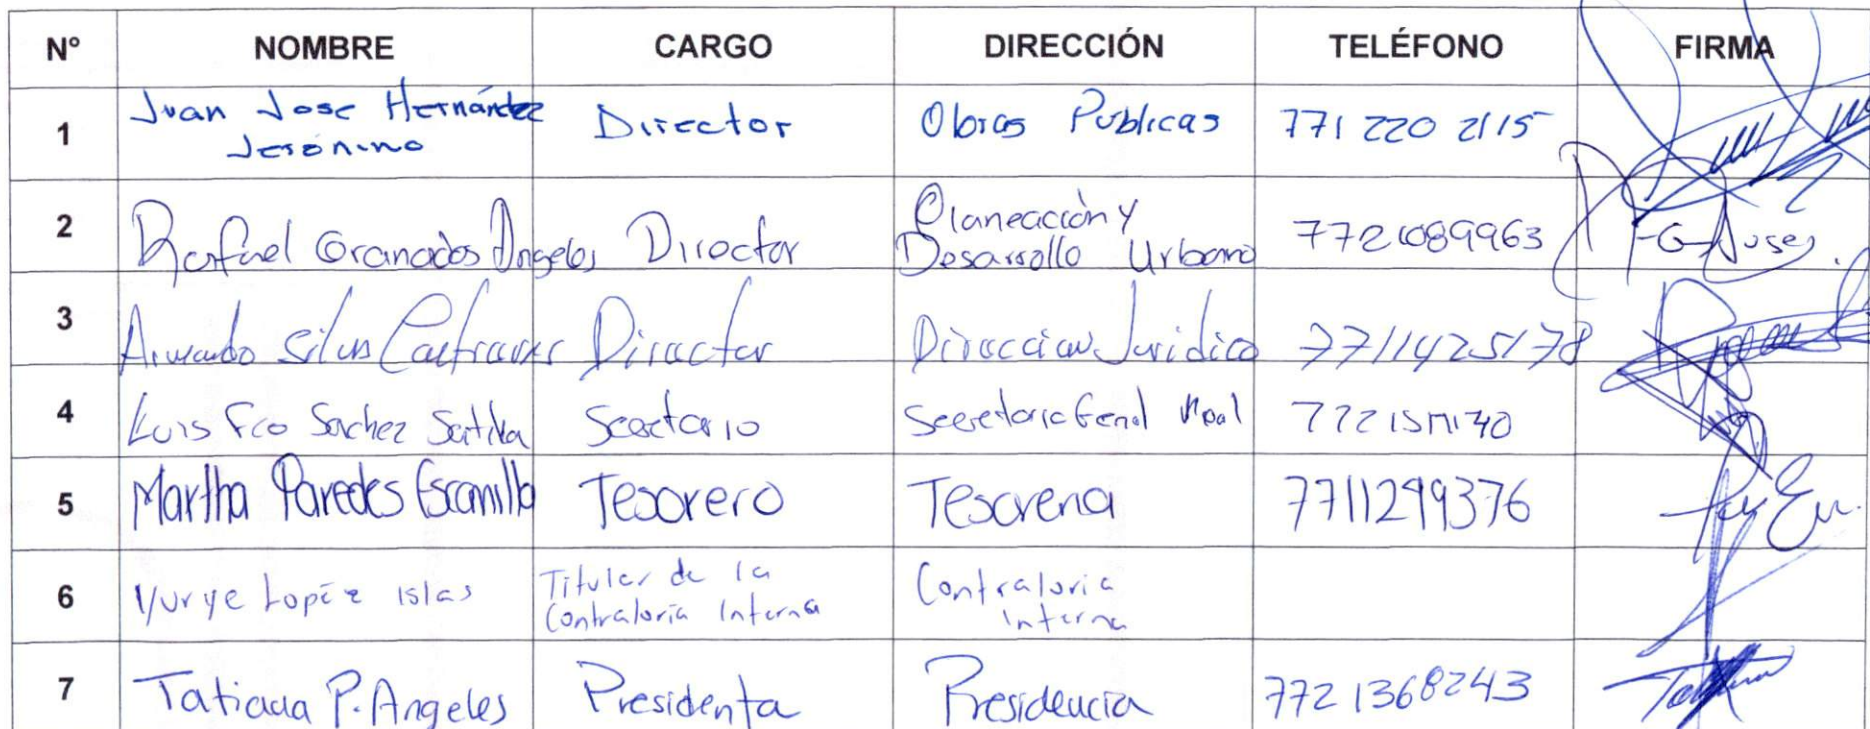 N° NOMBRE CARGO DIRECCIÓN TELÉFONO FIRMA
1 Juan Jose Hernández Jerónimo Director Obras Publicas 771 220 2115
2 Rafael Granados Angeles Director Planeación y Desarrollo Urbano
3 Armando Silus Director Direccion Juridica 7711425178
4 Luis Fco Secretario
5 Martha Paredes Escamilla Tesorero Tesoreria 7711299376
6 Yurye Lopéz islas Titular de la Contraloría Interna Contraloria Interna
7 Tatiana P. Angeles Presidenta Presidencia 772 1368243